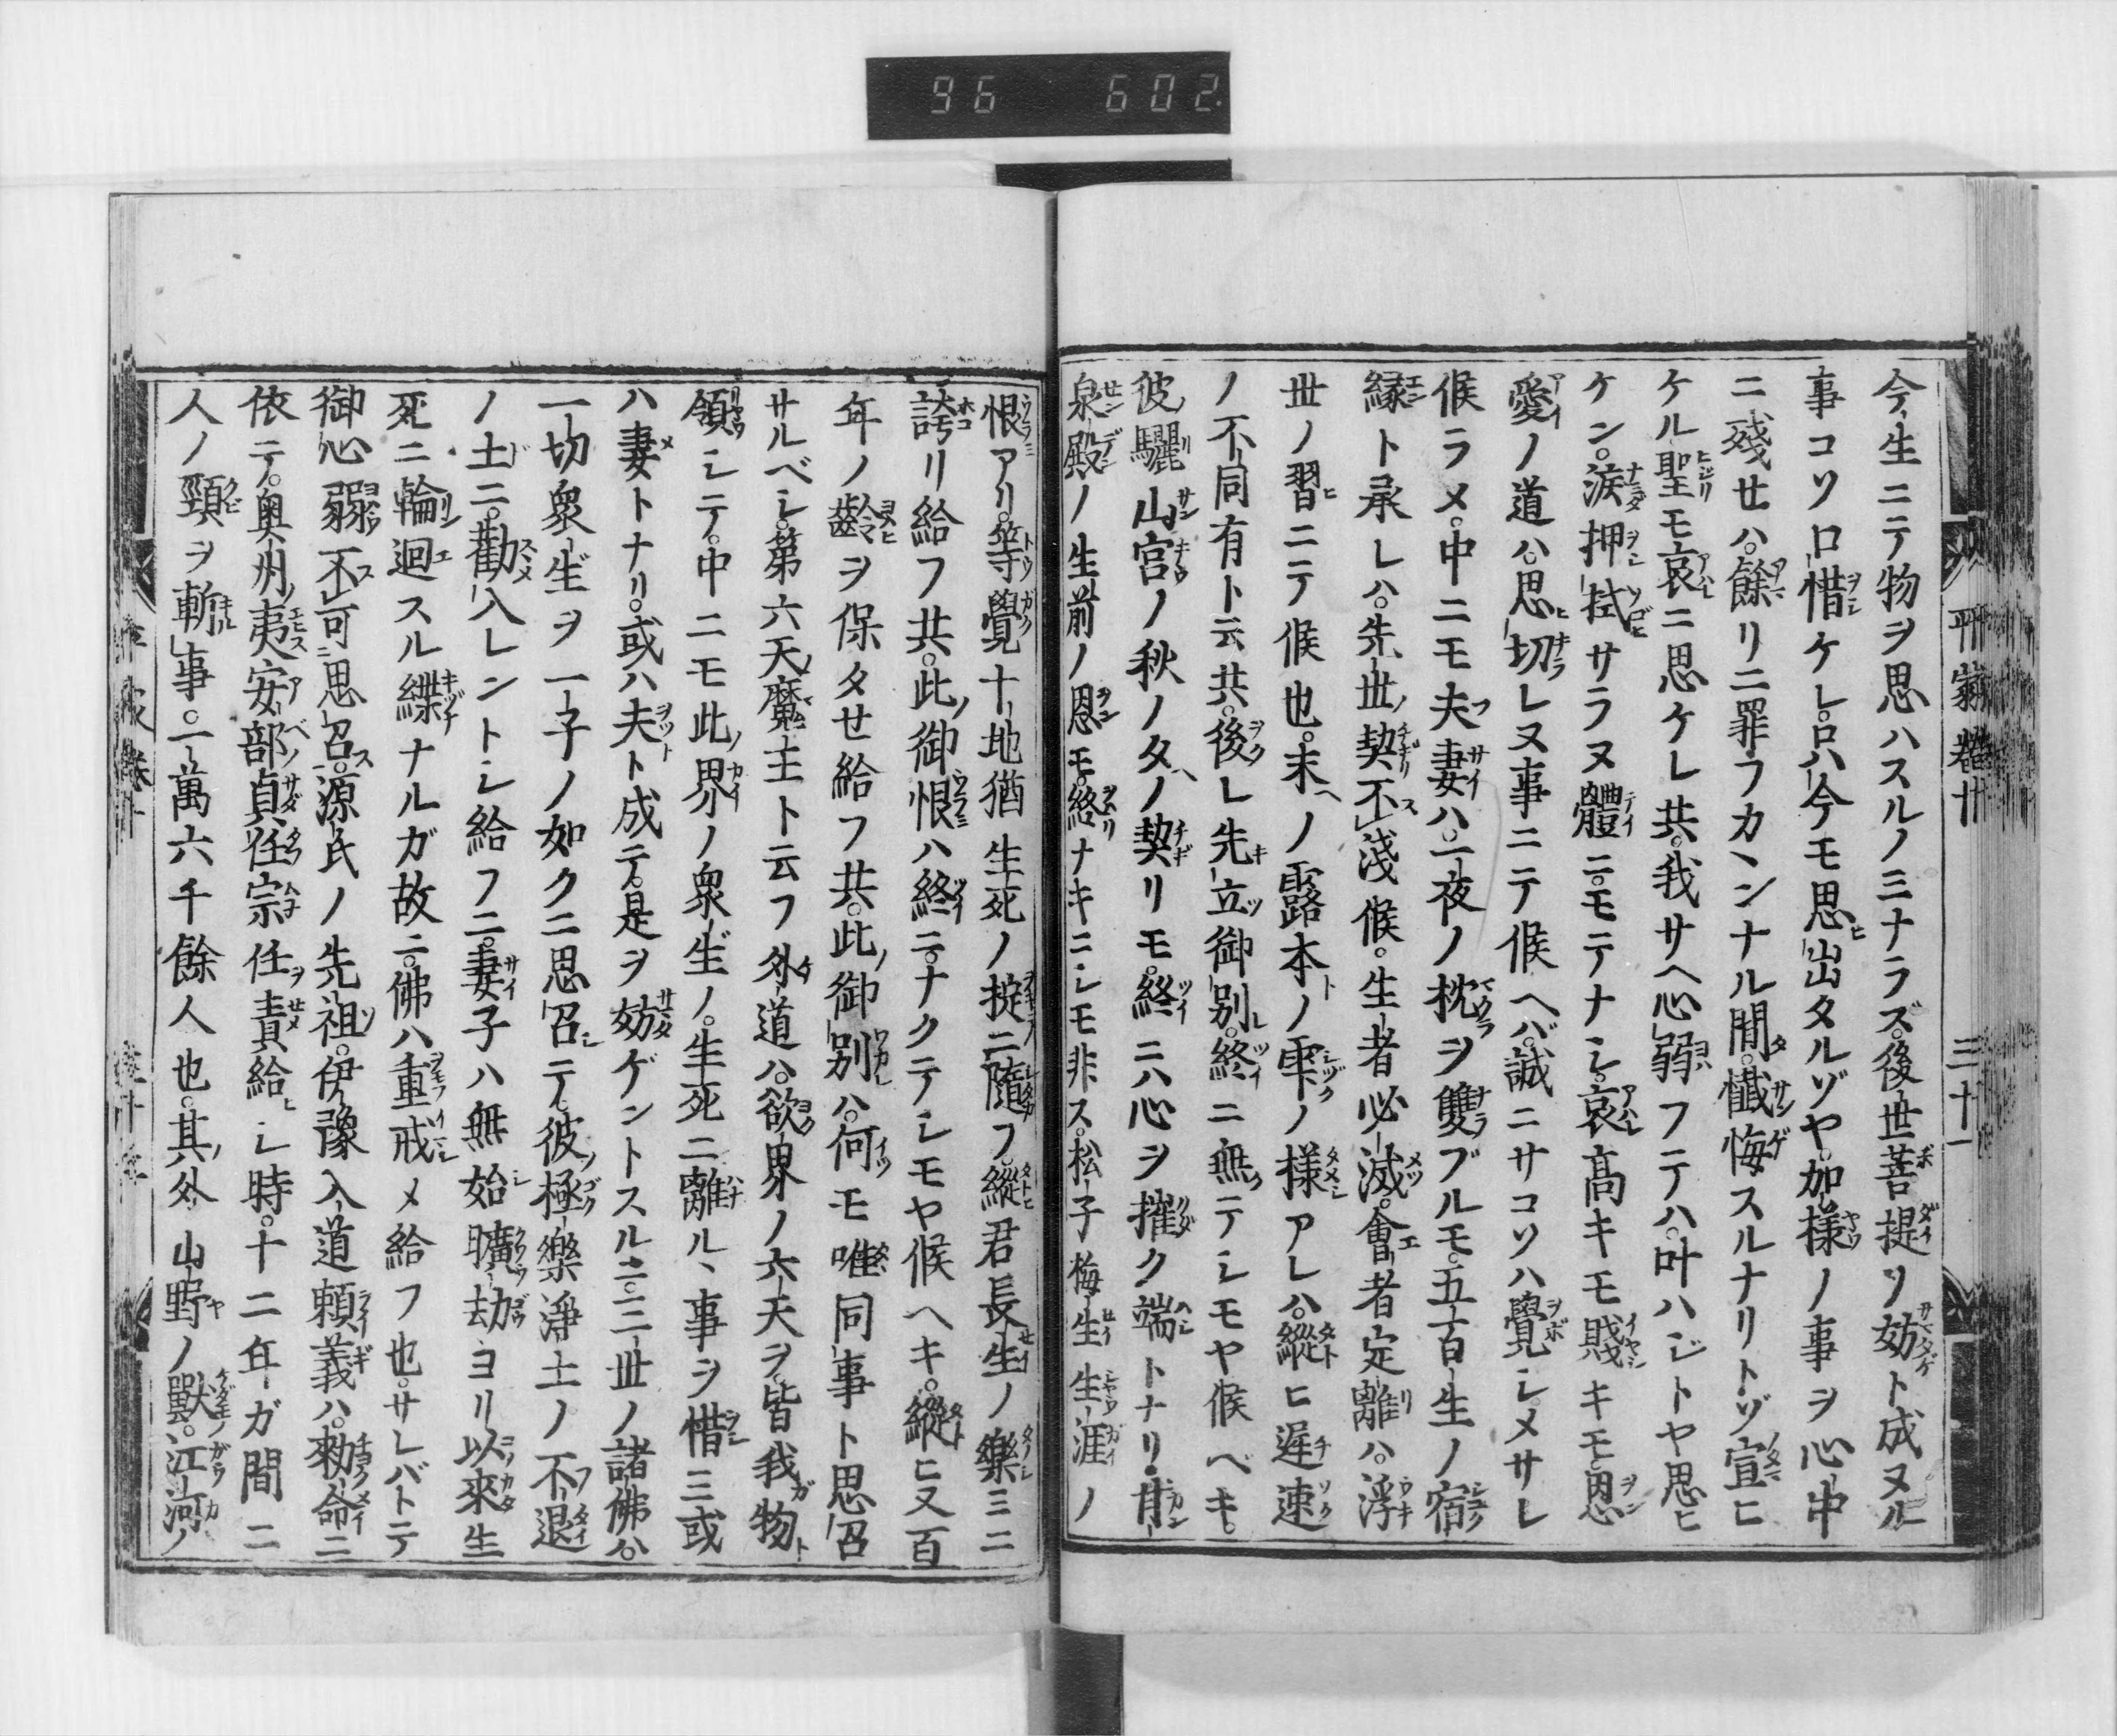 96 602.
平家卷十 三十一
今生ニテ物ヲ思ハスルノミナラズ。後世菩提ノ妨ト成ヌル
事コソ口惜ケレ。只今モ思出タルゾヤ。加樣ノ事ヲ心中
ニ殘セハ。餘リニ罪フカヽンナル間。懺悔スルナリトゾ宣ヒ
ケル聖モ哀ニ思ケレ共。我サヘ心弱フテハ。叶ハジトヤ思ヒ
ケン。涙押拭サラヌ體ニモテナシ。哀高キモ賤キモ。恩
愛ノ道ハ。思切レヌ事ニテ候ヘバ。誠ニサコソハ覺シメサレ
候ラメ。中ニモ夫妻ハ。一夜ノ枕ヲ雙ブルモ。五百生ノ宿
縁ト承レハ。先世ノ契不淺候。生者必滅。會者定離ハ。浮
世ノ習ニテ候也。末ノ露本ノ雫ノ樣アレハ。縱ヒ遲速
ノ不同有ト云共。後レ先立御別。終ニ無テシモヤ候ベキ。
彼驪山宮ノ秋ノ夕ノ契リモ。終ニハ心ヲ摧ク端トナリ。甘
泉殿ノ生前ノ恩モ。終ナキニシモ非ス。松子梅生生涯ノ
恨アリ。等覺十地猶生死ノ掟ニ隨フ。縱君長生ノ樂ミニ
誇リ給フ共。此御恨ハ終ニナクテシモヤ候ヘキ。縱ヒ又百
年ノ齡ヲ保タせ給フ共。此御別ハ。何モ唯同事ト思召
サルベシ。第六天ノ魔王ト云フ外道ハ。欲界ノ六天ヲ皆我物ト
領シテ。中ニモ此界ノ衆生ノ。生死ニ離ルヽ事ヲ惜ミ或
ハ妻トナリ。或ハ夫ト成テ。是ヲ妨ゲントスルニ。三世ノ諸佛ハ。
一切衆生ヲ一子ノ如クニ思召テ。彼極樂淨土ノ不退
ノ土ニ。勸入レントシ給フニ。妻子ハ無始曠劫ヨリ以來生
死ニ輪迴スル緤ナルガ故ニ。佛ハ重戒メ給フ也。サレバトテ
御心弱不可思召。源氏ノ先祖。伊豫入道頼義ハ。勅命ニ
依テ。奥州ノ夷安部ノ貞任宗任ヲ責給ヒシ時。十二年ガ間ニ
人ノ頸ヲ斬事。一萬六千餘人也。其外山野ノ獸。江河ノ